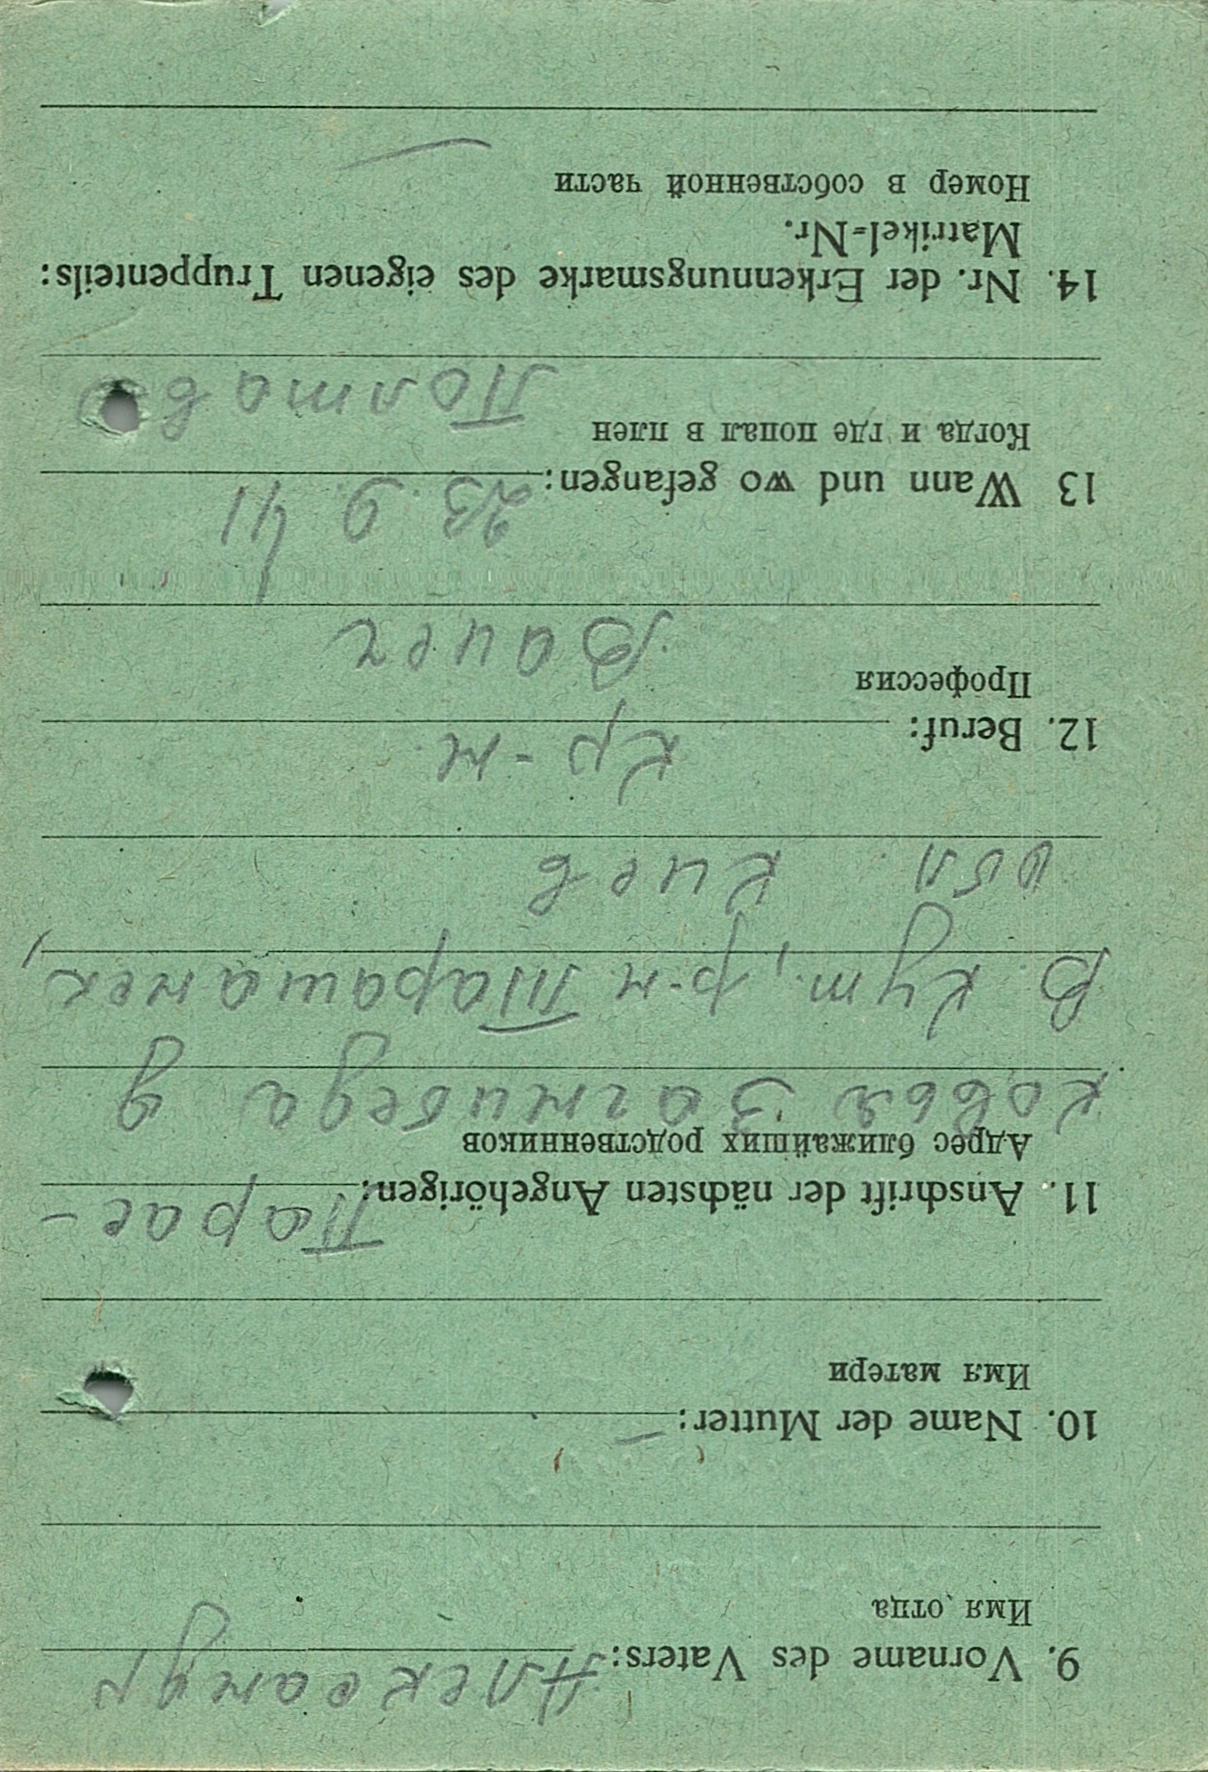 9. Vorname des Vaters: Александр
Имя отца
10. Name der Mutter: —
Имя матери
11. Anschrift der nächsten Angehörigen: Парас-
Адрес ближайших родственников
ковья Загнибеда д
В. Кут, р-н Таращанск,
обл Киев
12. Beruf: кр-н
Профессия
13 Wann und wo gefangen: 23. 9. 41
Когда и где попал в плен
Полтава
14. Nr. der Erkennungsmarke des eigenen Truppenteils:
Matrikel-Nr.
Номер в собственной части
—